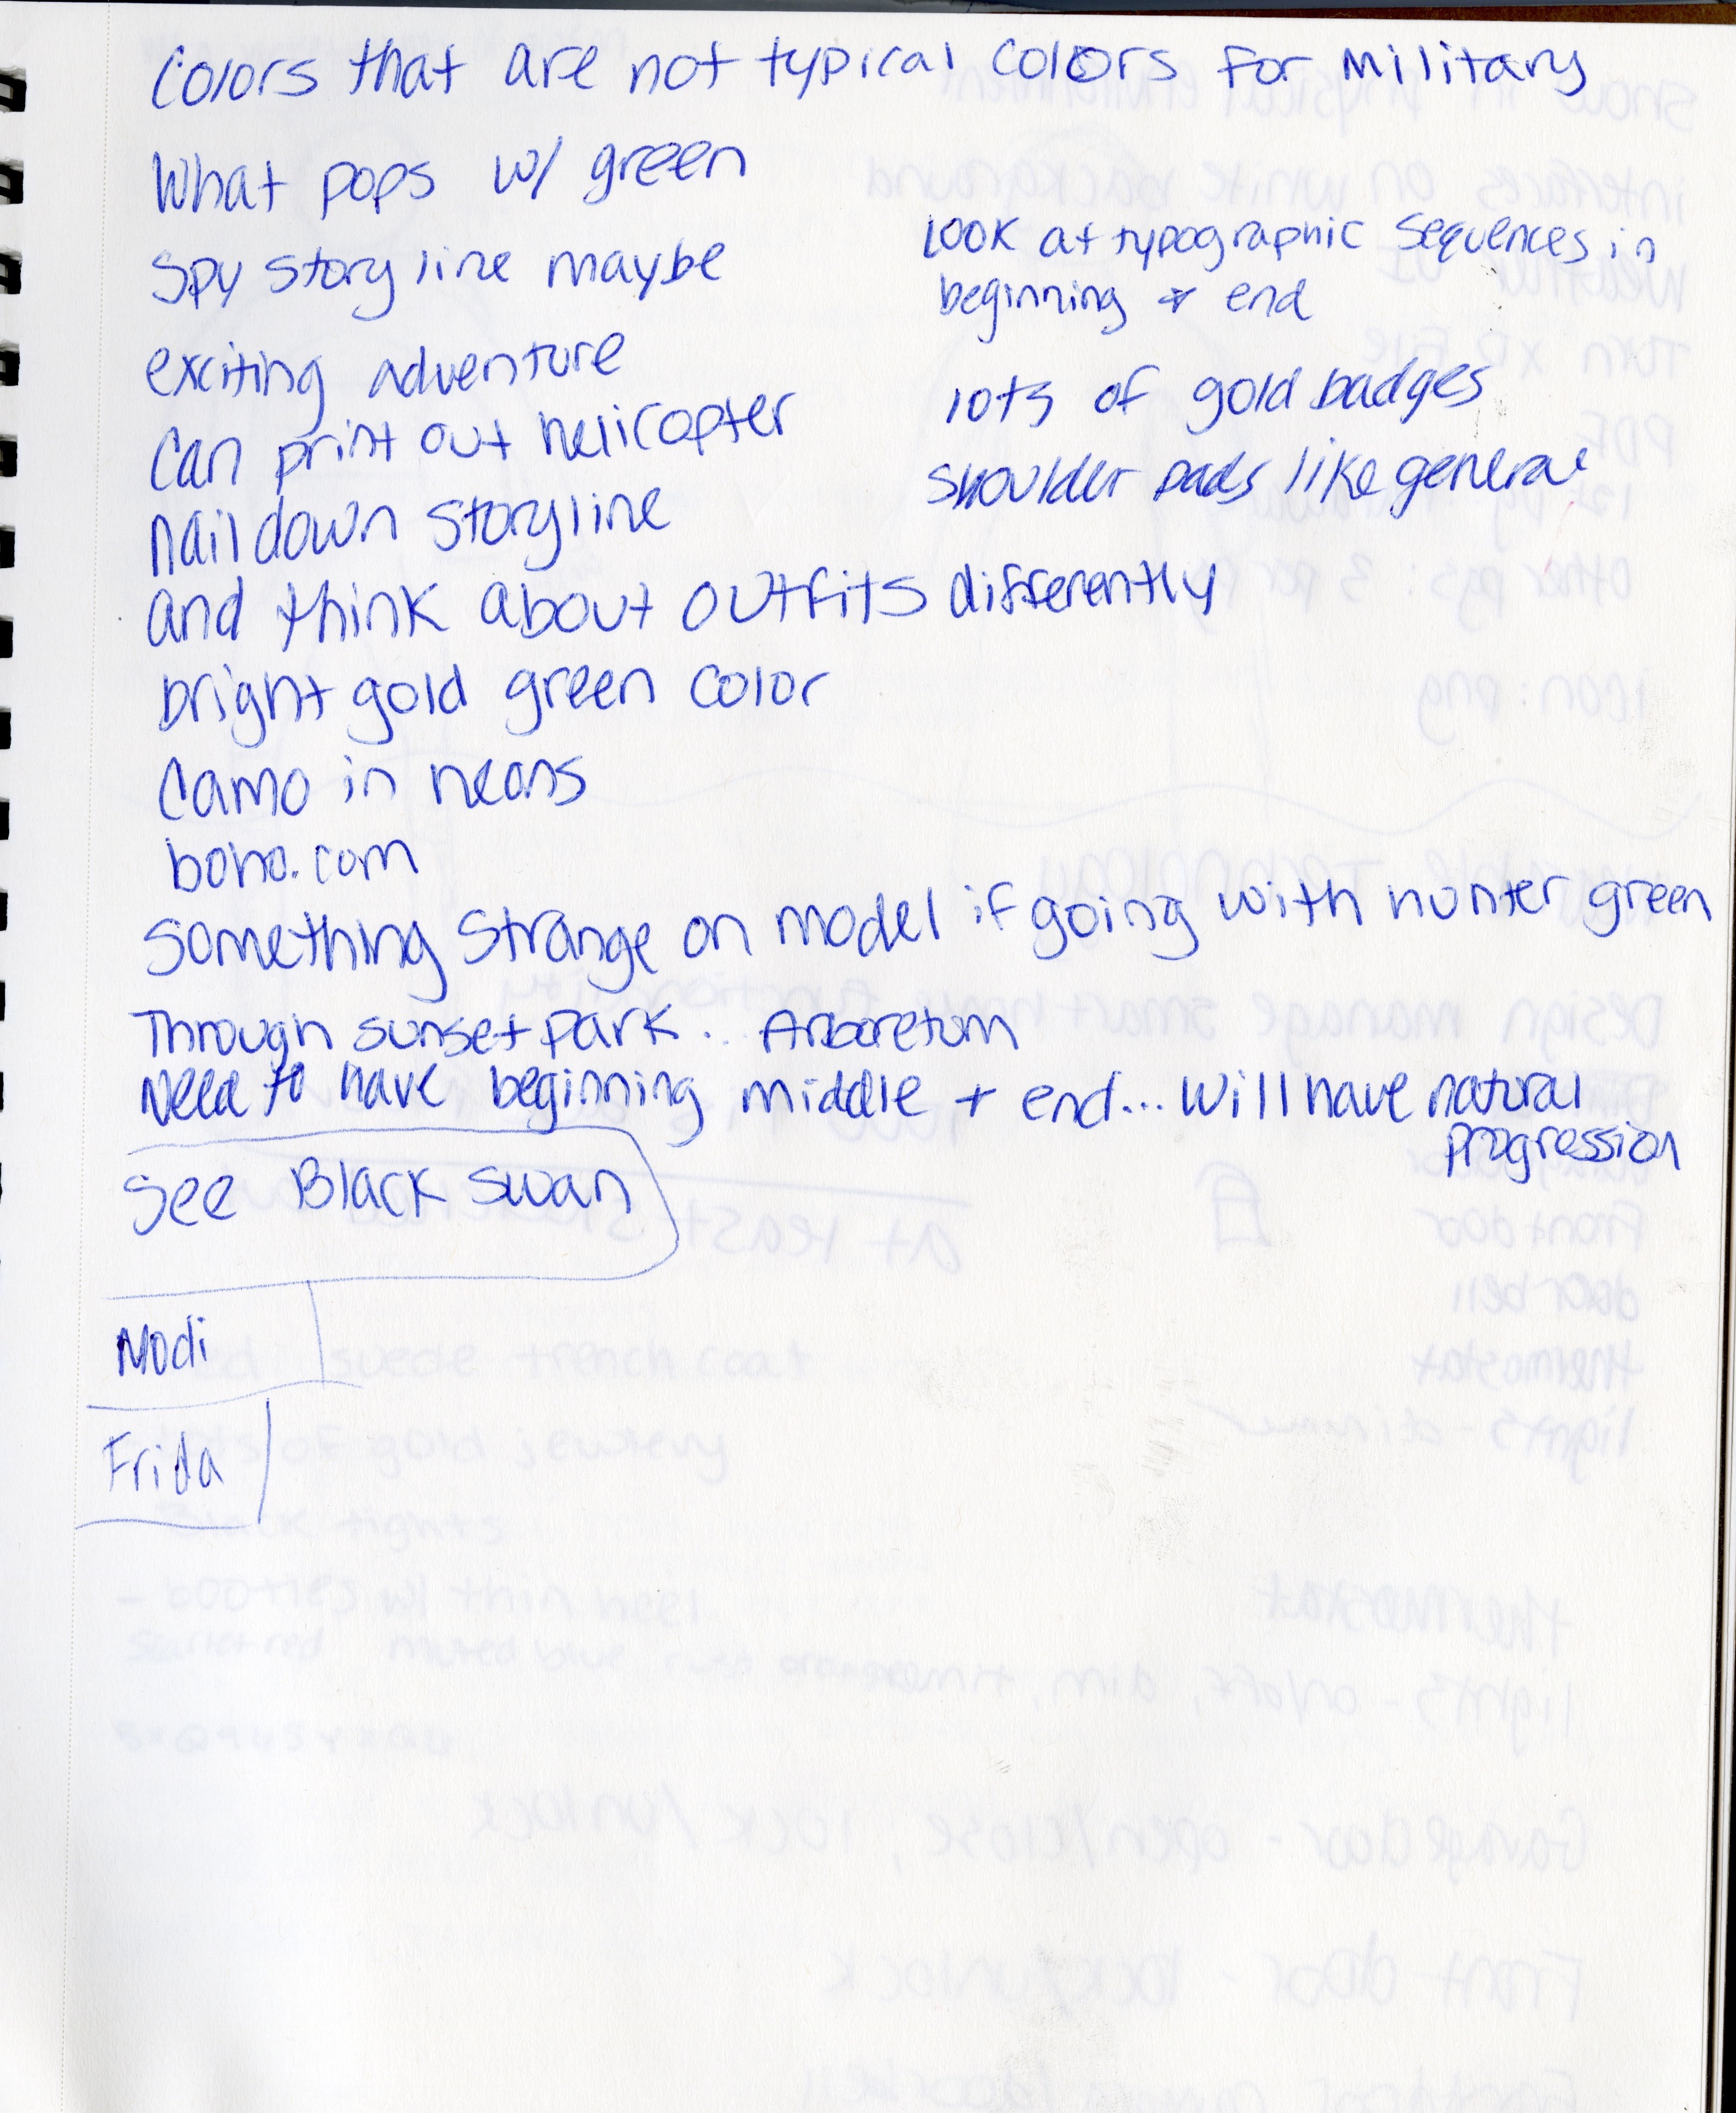 Colors that are not typical colors for military
What pops w/ green
Spy story line maybe
exciting adventure
Can print out helicopter
nail down storyline
and think about outfits differently
bright gold green color
Camo in neons
boho.com
Something strange on model if going with hunter green
Through sunset park... Arboretum
Need to have beginning middle + end... will have natural
progression
See Black Swan
Modi
Frida
Look at typographic sequences in
beginning + end
lots of gold badges
shoulder pads like general
suede trench coat
of gold jewlery
Black tights
- booties w/ thin heel